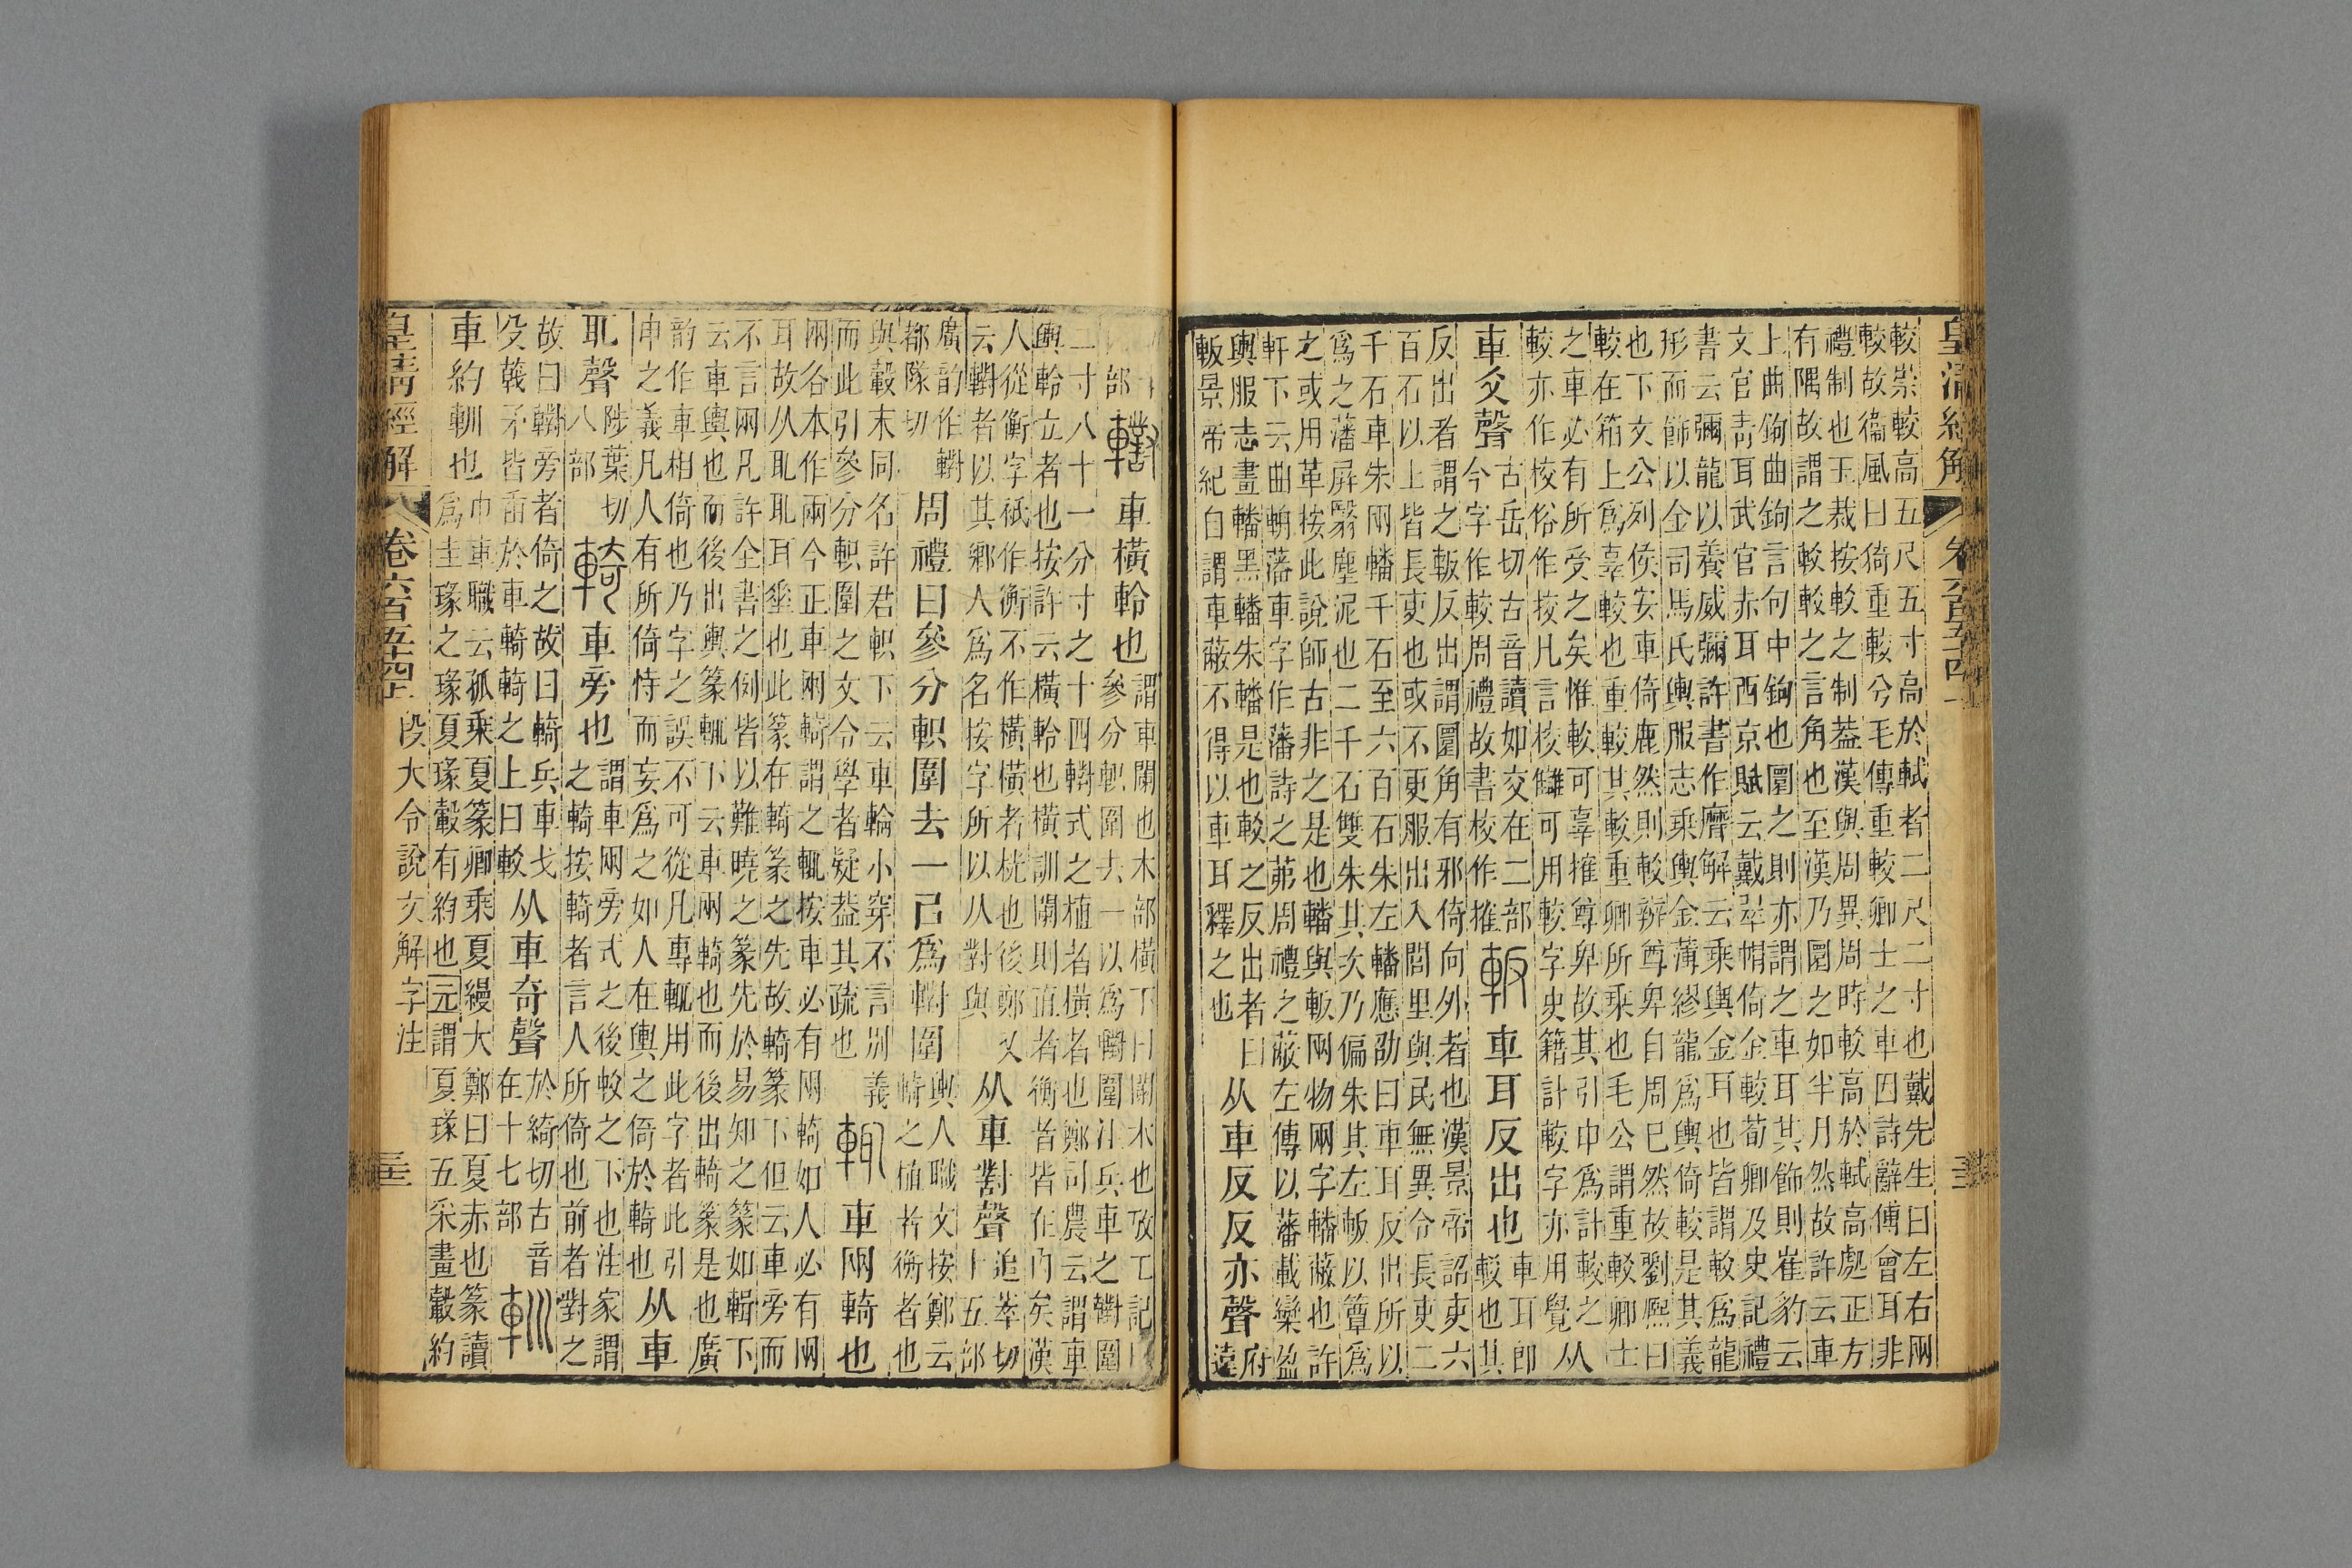 皇清經解 卷六百五十四上
較崇較高五尺五寸高於軾者二尺二寸也戴先生曰左右兩
較故衞風曰猗重較兮毛傳重較卿士之車因詩辭傅會耳非
禮制也玉裁按較之制葢漢與周異周時較高於軾高處正方
有隅故謂之較較之言角也至漢乃圜之如半月然故許云車
上曲鉤曲鉤言句中鉤也圜之則亦謂之車耳其飾則崔豹云
文官靑耳武官赤耳西京賦云戴翠帽倚金較荀卿及史記禮
書云彌龍以養威彌許書作𦗕解云乘輿金耳也皆謂較爲龍
形而飾以金司馬氏輿服志乘輿金薄繆龍爲輿倚較是其義
也下文公列侯安車倚鹿然則較辨尊卑自周已然故劉熙曰
較在箱上爲辜較也重較其較重卿所乘也毛公謂重較卿士
之車必有所受之矣惟較可辜搉尊卑故其引申爲計較之
較亦作校俗作挍凡言校讎可用較字史籍計較字亦用覺
从
車爻聲
古岳切古音讀如交在二部
今字作較周禮故書校作搉
䡊車耳反出也
車耳卽
較也其
反出者謂之䡊反出謂圜角有邪倚向外者也漢景帝詔吏六
百石以上皆長吏也或不更服出入閭里與民無異令長吏二
千石車朱兩轓千石至六百石朱左轓應劭曰車耳反出所以
爲之藩屏翳塵泥也二千石雙朱其次乃偏朱其左䡊以簟爲
之或用革按此說師古非之是也轓與䡊兩物兩字轓蔽也許
軒下云曲輈藩車字作藩詩之茀周禮之蔽左傳以藩載欒盈
輿服志畫轓黑轓朱轓是也較之反出者曰
䡊景帝紀自謂車蔽不得以車耳釋之也
从車反反亦聲
府
遠
部
轛車橫軨也
謂車闌也木部橫下曰闌木也攷工記
參分軹圍去一以爲轛圍注兵車之轛圍
二寸八十一分寸之十四轛式之植者橫者也鄭司農云謂車
輿軨立者也按許云橫軨也橫訓闌則直者衡者皆在內矣漢
人從衡字祇作衡不作橫橫者桄也後鄭又
云轛者以其鄉人爲名按字所以从對與
从車對聲
追萃切
十五部
廣韵作轛
都隊切
周禮曰參分軹圍去一㠯爲轛圍
輿人職文按鄭云
輢之植者衡者也
與轂末同名許君軹下云車輪小穿不言別義
而此引參分軹圍之文令學者疑葢其疏也
輒車兩輢也
兩谷本作兩今正車兩輢謂之輒按車必有兩輢如人必有兩
耳故从耴耴耳𠂹也此篆在輢篆之先故輢篆下但云車旁而
不言兩凡許全書之例皆以難曉之篆先於易知之篆如輯下
云車輿也而後出輿篆輒下云車兩輢也而後出輢篆是也廣
韵作車相倚也乃字之誤不可從凡專輒用此字者此引
申之義凡人有所倚恃而妄爲之如人在輿之倚於輢也
从車
耴聲
陟葉切
八部
輢車旁也
謂車兩旁式之後較之下也注家謂
之輢按輢者言人所倚也前者對之
故曰轛旁者倚之故曰輢兵車戈
殳𢧢矛皆臿於車輢輢之上曰較
从車奇聲
於綺切古音
在十七部
䡅
車約䡅也
巾車職云孤乘夏篆卿乘夏縵大鄭曰夏赤也篆讀
爲圭瑑之瑑夏瑑轂有約也元謂夏瑑五采畫轂約
皇清經解 卷六百五十四上 段大令說文解字注